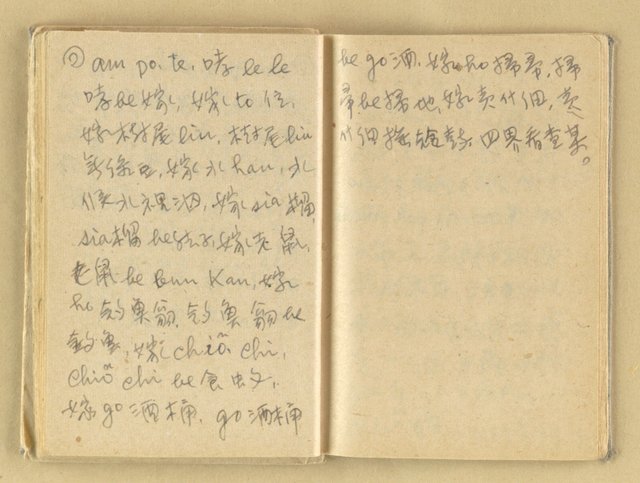 ② am po. te. 哮 le le
哮 be 嫁, 嫁 to 位.
嫁 樹尾 liu, 樹尾 liu
嫁 水 han, 水
嫁 sia 榴,
sia 榴 be 嫁 老鼠,
老鼠 be bun kan, 嫁
ho 釣魚翁, 釣魚翁 be
釣魚, 嫁 chiⁿ chi,
chi be 食蚊,
嫁 go 酒桶, go 酒桶
be go 酒, 嫁 ho 掃帚, 掃
帚 be 掃地, 嫁 賣什細, 賣
什細 搖 鼓, 四界看查某。